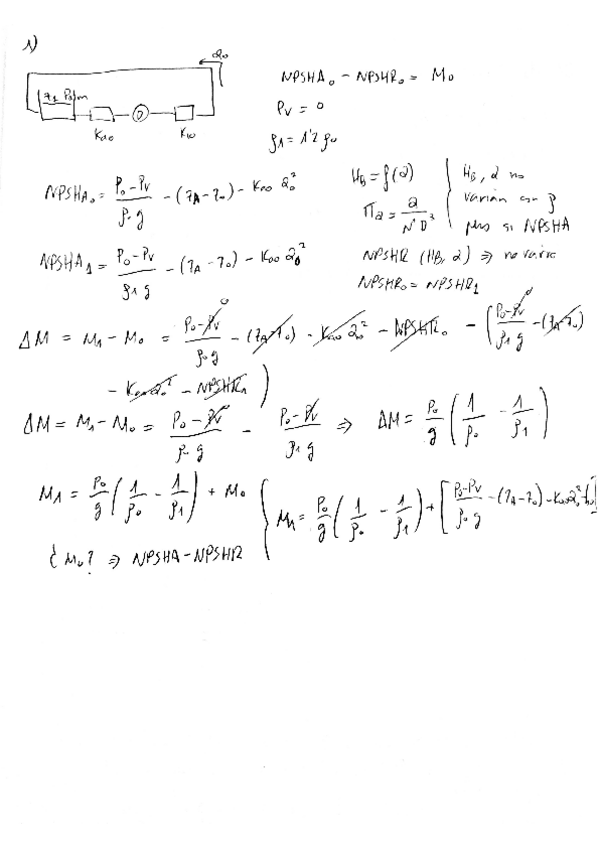 1)
Q₀
z₁ Patm
Ka₀ D Ki₀
NPSHA₀ - NPSHR₀ = M₀
Pv = 0
ρ₁ = 1'2 ρ₀
NPSHA₀ = (P₀ - Pv)/(ρ₀ g) - (zA - z₀) - Ka₀ Q₀²
NPSHA₁ = (P₀ - Pv)/(ρ₁ g) - (zA - z₀) - Ka₀ Q₀²
HB = f(Q)
Πa = Q/(N D³)
HB, Q no
varían con ρ
pero si NPSHA
NPSHR (HB, Q) ⇒ no varia
NPSHR₀ = NPSHR₁
ΔM = M₁ - M₀ = (P₀ - Pv)/(ρ₀ g) - (zA - z₀) - Ka₀ Q₀² - NPSHR₀ - ((P₀ - Pv)/(ρ₁ g) - (zA - z₀)
- Ka₀ Q₀² - NPSHR₁)
ΔM = M₁ - M₀ = (P₀ - Pv)/(ρ₀ g) - (P₀ - Pv)/(ρ₁ g) ⇒ ΔM = P₀/g (1/ρ₀ - 1/ρ₁)
M₁ = P₀/g (1/ρ₀ - 1/ρ₁) + M₀
M₁ = P₀/g (1/ρ₀ - 1/ρ₁) + [(P₀ - Pv)/(ρ₀ g) - (zA - z₀) - Ka₀ Q₀²
¿M₀? ⇒ NPSHA - NPSHR